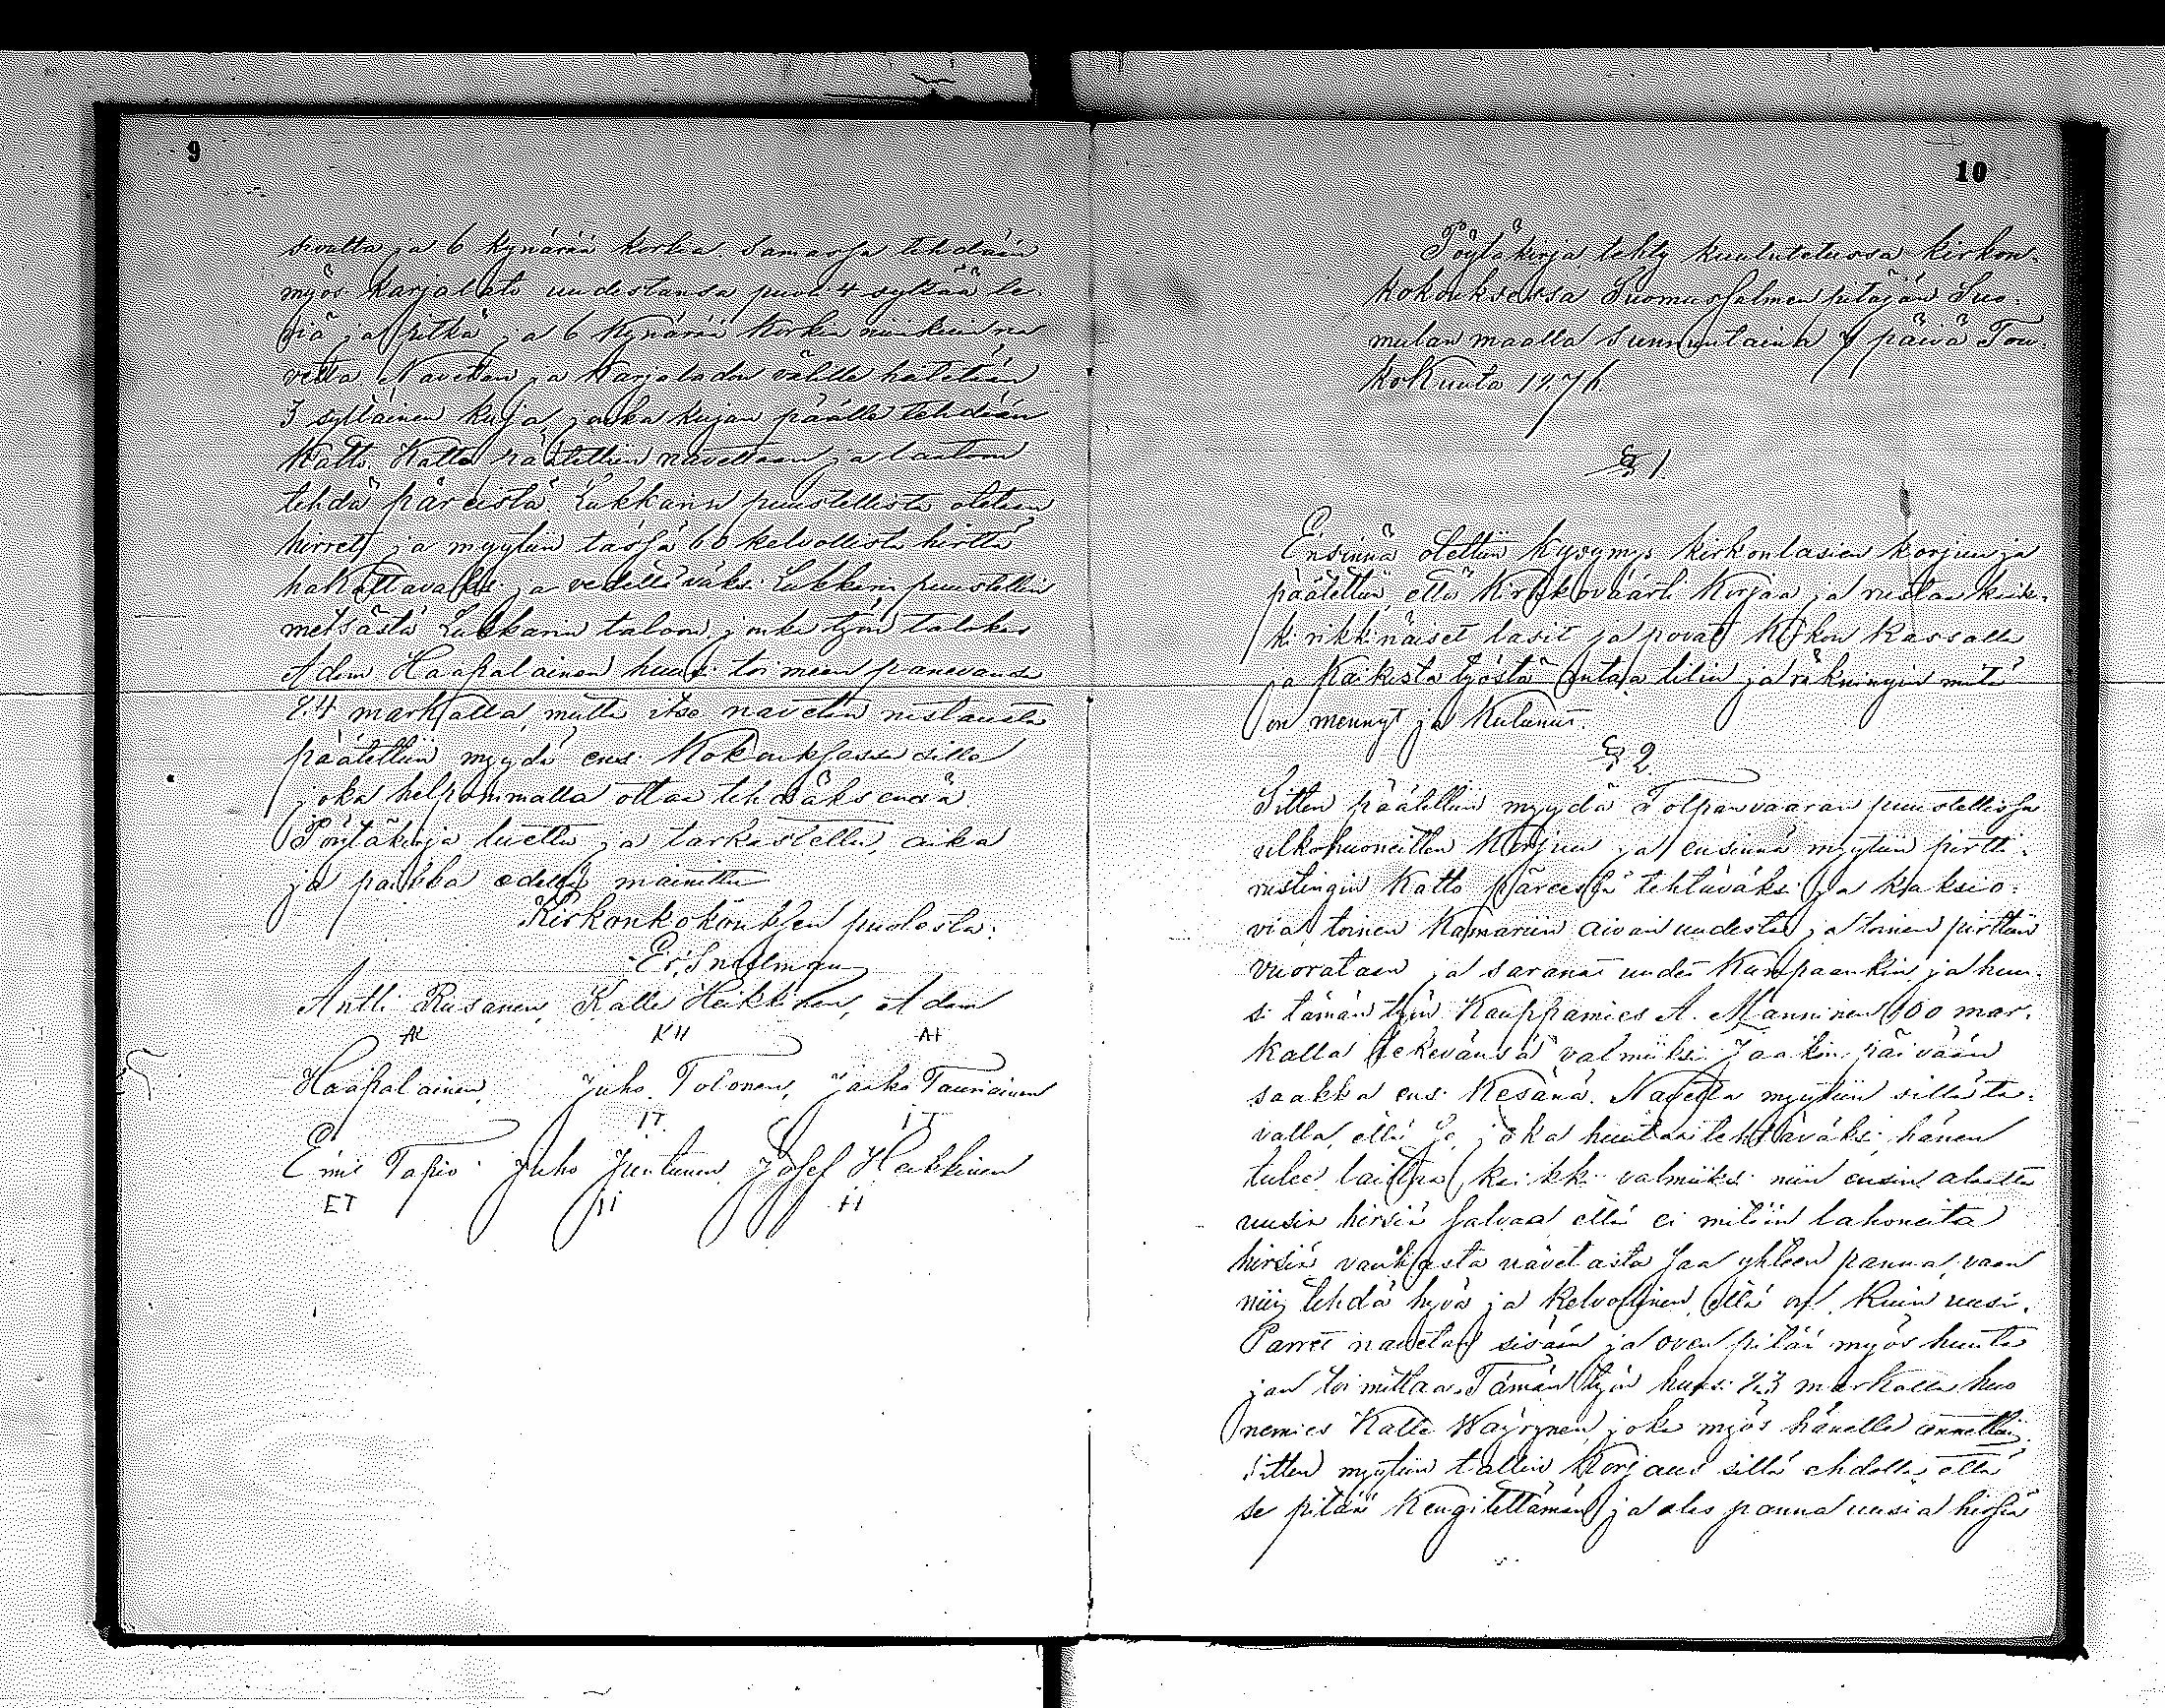 9
sivulta ja 6 kynärää korkea. Samassa tehdään
myös karjalato uudestansa puol 4 syltää le
viä ja pitkä ja 6 kynärää korkea niinkuin na
vetta. Navetan ja karjaladon välille jätetään
3 syltäinen kuja, jonka kujan päälle tehdään
katto. Katto päätettiin navettaan ja laatoon
tehdä päreistä. Lukkarin puustellista otetaan
hirret ja myytiin tässä 60 kelvollista hirttä
hakattavaksi ja vedettäväksi Lukkarin puustellin
metsästä Lukkarin taloon, jonka työn talokas
Adam Haapalainen huusi toimeen panevansa
24 markalla, mutta itse navetan rustausta
päätettiin myydä ens. Kokouksessa sille
joka helpommalla ottaa tehdäksensä.
Pöytäkirja luettu ja tarkastettu, aika
ja paikka edellä mainittu
Kirkonkokouksen puolesta:
Er. Snellman
Antti Rusanen, Kalle Heikkinen, Adam
AR KH AH
Haapalainen, Juho Tolonen, Jaako Tauriainen
IT IT
Emil Tapio Juho Juntunen Josef Heikkinen
ET II IH
10
Pöytäkirja tehty kuulutetussa kirkon-
kokouksessa Suomussalmen pitäjän Suo-
mulan maalla Sunnuntaina 7 päivä Tou-
kokuuta 1876
§ 1.
Ensinnä otettiin kysymys kirkonlasien korjuu ja
päätettiin, että Kirkkoväärti korjaa ja rustaa kaik-
ki rikkinäiset lasit ja povat Kirkon Kassalla
ja kaikista työstä antaa tilin ja räkningin mitä
on mennyt ja kulunut.
§ 2.
Sitten päätettiin myydä Tolpanvaaran puustellissa
ulkohuoneitten korjuu ja ensinnä myytiin pirtti-
rustingin katto päreistä tehtäväksi ja kaksi o-
via, toinen kamariin aivan uudesta ja toinen pirttiin
vuorataan ja saranat uudet kumpaankin ja huu-
si tämän työn Kauppamies A. Manninen 100 mar-
kalla tekevänsä valmiiksi Jaakon päivään
saakka ens. Kesänä. Navetta myytiin sillä ta-
valla, että se, joka huutaa tehtäväksi, hänen
tulee laittaa kaikki valmiiksi niin ensin alaalta
uusia hirsiä salvaa että ei mitään lahoneita
hirsiä vanhasta navetasta saa yhteen panna, vaan
niin tehdä hyvä ja kelvollinen, että on kuin uusi.
Parret navetan sisään ja oven pitää myös huuta
jan toimittaa. Tämän työn huusi 23 markalla huo
nemies Kalle Wäyrynen, joka myös hänelle annettiin.
Sitten myytiin tallin korjaus sillä ehdolla, että
se pitää kengitettämän ja alas panna uusia hirsiä